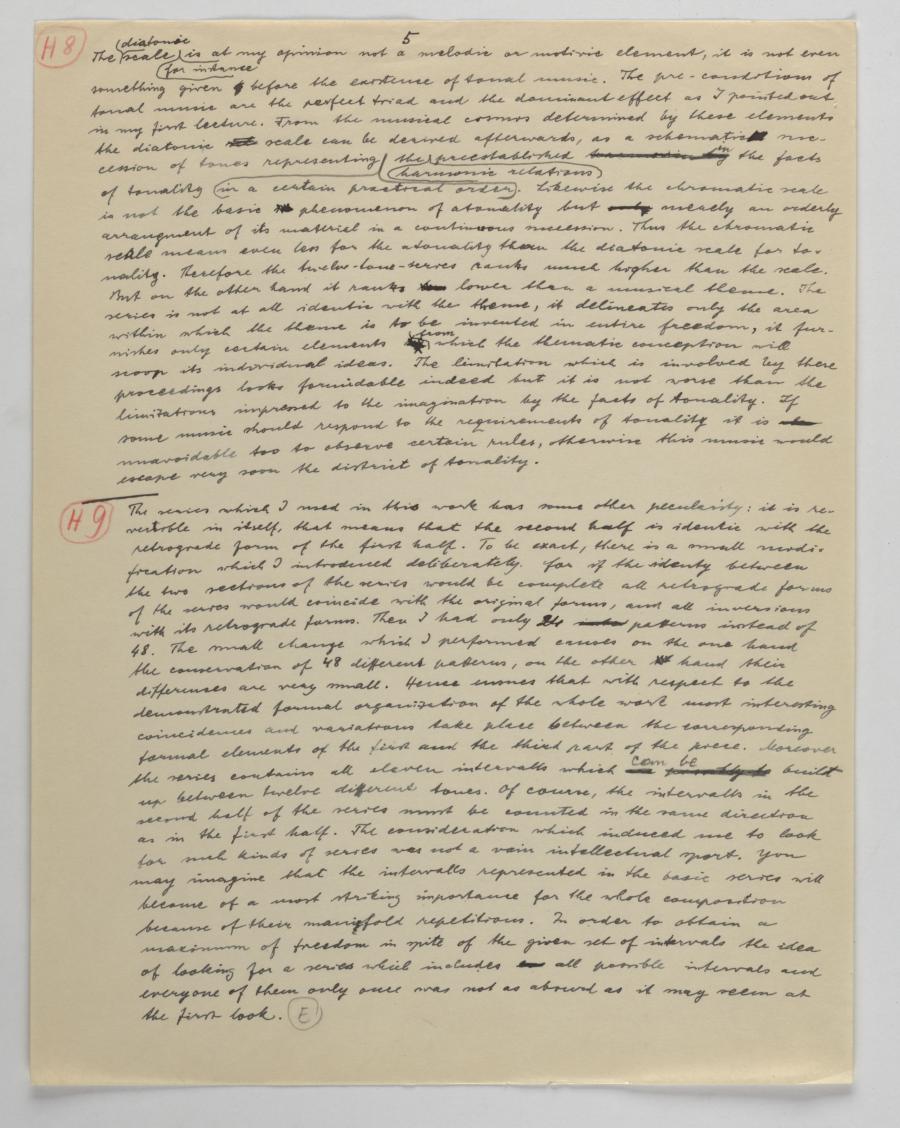 H 8
5
(diatonic
The (scale) is at my opinion not a melodic or motivic element, it is not even
(for instance
something given before the existence of tonal music. The pre-conditions of
tonal music are the perfect triad and the dominant effect as I pointed out
in my first lecture. From the musical cosmos determined by these elements
the diatonic scale can be derived afterwards, as a schematic suc-
cession of tones representing the preestablished in the facts
(harmonic relations)
of tonality (in a certain practical order). Likewise the chromatic scale
is not the basic phenomenon of atonality but merely an orderly
arrangment of its material in a continuous succession. Thus the chromatic
scale means even less for the atonality than the diatonic scale for to-
nality. Therefore the twelve-tone-series ranks much higher than the scale.
But on the other hand it ranks lower than a musical theme. The
series is not at all identic with the theme, it delineates only the area
within which the theme is to be invented in entire freedom, it fur-
from
nishes only certain elements which the thematic conception will
scoop its individual ideas. The limitation which is involved by these
proceedings looks formidable indeed but it is not worse than the
limitations impressed to the imagination by the facts of tonality. If
some music should respond to the requirements of tonality it is
unavoidable too to observe certain rules, otherwise this music would
escape very soon the district of tonality.
H 9
The series which I used in this work has some other peculiarity: it is re-
versible in itself, that means that the second half is identic with the
retrograde form of the first half. To be exact, there is a small modi-
fication which I introduced deliberately. For if the identy between
the two sections of the series would be complete all retrograde forms
of the series would coincide with the original forms, and all inversions
with its retrograde forms. Then I had only 24 patterns instead of
48. The small change which I performed causes on the one hand
the conservation of 48 different patterns, on the other hand their
differences are very small. Hence ensues that with respect to the
demonstrated formal organization of the whole work most interesting
coincidences and variations take place between the corresponding
formal elements of the first and the third part of the piece. Moreover
can be
the series contains all eleven intervalls which built
up between twelve different tones. Of course, the intervalls in the
second half of the series must be counted in the same direction
as in the first half. The consideration which induced me to look
for such kinds of series was not a vain intellectual sport. You
may imagine that the intervalls represented in the basic series will
become of a most striking importance for the whole composition
because of their manyfold repetitions. In order to obtain a
maximum of freedom in spite of the given set of intervals the idea
of looking for a series which includes all possible intervals and
everyone of them only once was not as absurd as it may seem at
the first look. E